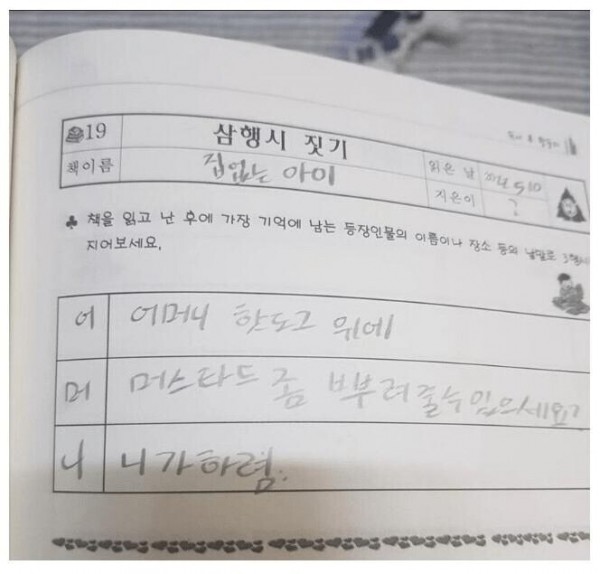 19
삼행시 짓기
책이름
집없는 아이
읽은 날
지은이
?
♣ 책을 읽고 난 후에 가장 기억에 남는 등장인물의 이름이나 장소 등의 낱말로 3행시
지어보세요.
어
어머니 핫도그 위에
머
머스타드 좀 뿌부려줄수 있으세요?
니
니가하렴.